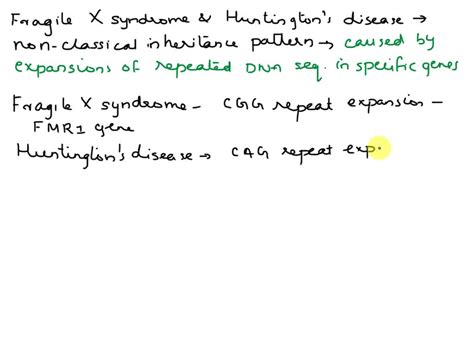 Fragile X syndrome & Huntington's disease →
non-classical inheritance pattern → caused by
expansions of repeated DNA seq. in specific genes
Fragile X syndrome - CGG repeat expansion -
FMR1 gene
Huntington's disease → CAG repeat exp.